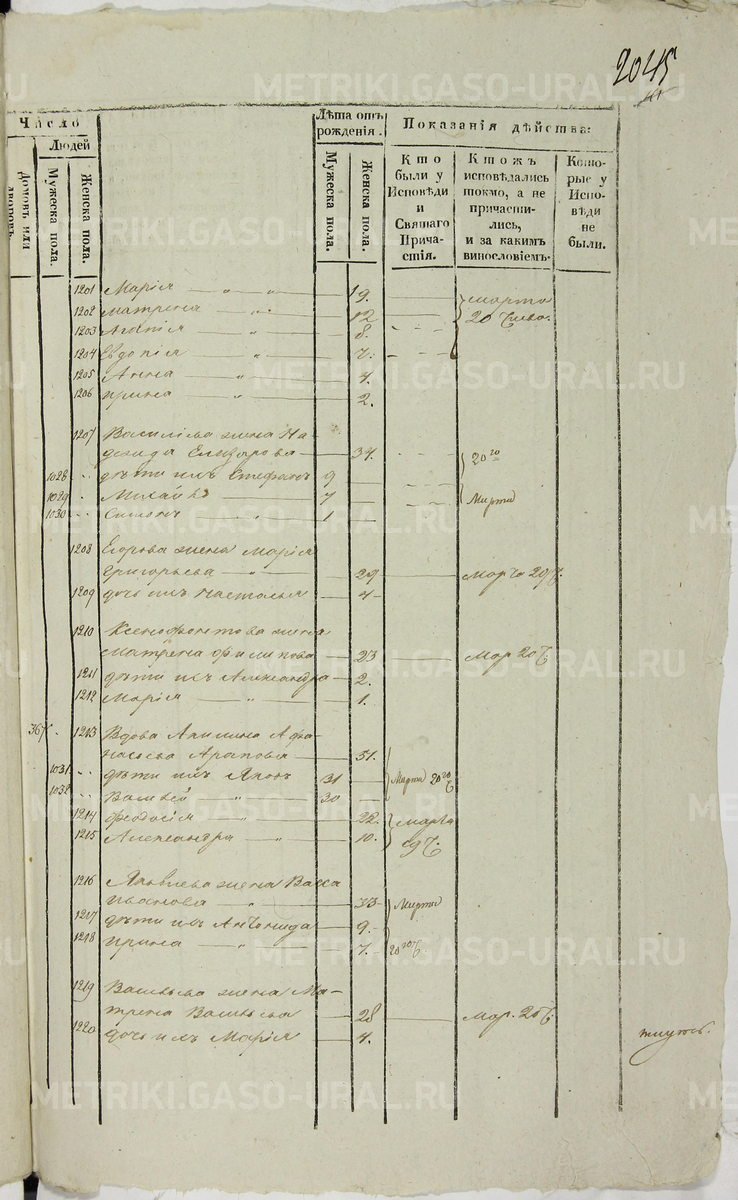 2045
Число
Людей
Домовъ или дворовъ.
Мужеска пола.
Женска пола.
Лѣта отъ рожденія.
Мужеска пола.
Женска пола.
Показанія дѣйства:
Кто были у Исповѣди и Святаго Причастія.
Ктожъ исповѣдались токмо, а не причастились, и за какимъ винословіемъ.
Которые у Исповѣди не были.
1201 Марія — „ — „ — 19.
1202 Матрена — „ — 12 Марта
1203 Агафія — „ — 8. 20
1204 Евдокія — „ — 7.
1205 Анна — „ — 4.
1206 Ирина — „ — 2.
1207 Василіева жена На-
дежда Елизарова — 34. 20го
1028 дѣти ихъ Стефанъ 9
1029 Михайло 7 Марта
1030 1
1208 Егорова жена Марія
Григорьева — „ — 29 Мар
1209 дочь ихъ Настасья — 4
1210 Ксенофонтова жена
Матрена Филипова — 23 Мар 20
1211 дѣти ихъ Александра — 2.
1212 Марія — „ — 1.
367 1213 Вдова Афа-
насьева — 51.
1031 дѣти ихъ 31 Марта 20го
1032 Василей — „ — 30
1214 Феодосія — „ — 22. Марта
1215 Александра — „ — 10.
1216 Яковлева жена Васса
Иванова — „ — 33 Марта
1217 дѣти ихъ Антонида — 9.
1218 Ирина — „ — 7. 20го
1219 Васильева жена Ма-
трена Васильева — 28 Мар. 20
1220 дочь ихъ Марія — 4.
METRIKI.GASO-URAL.RU